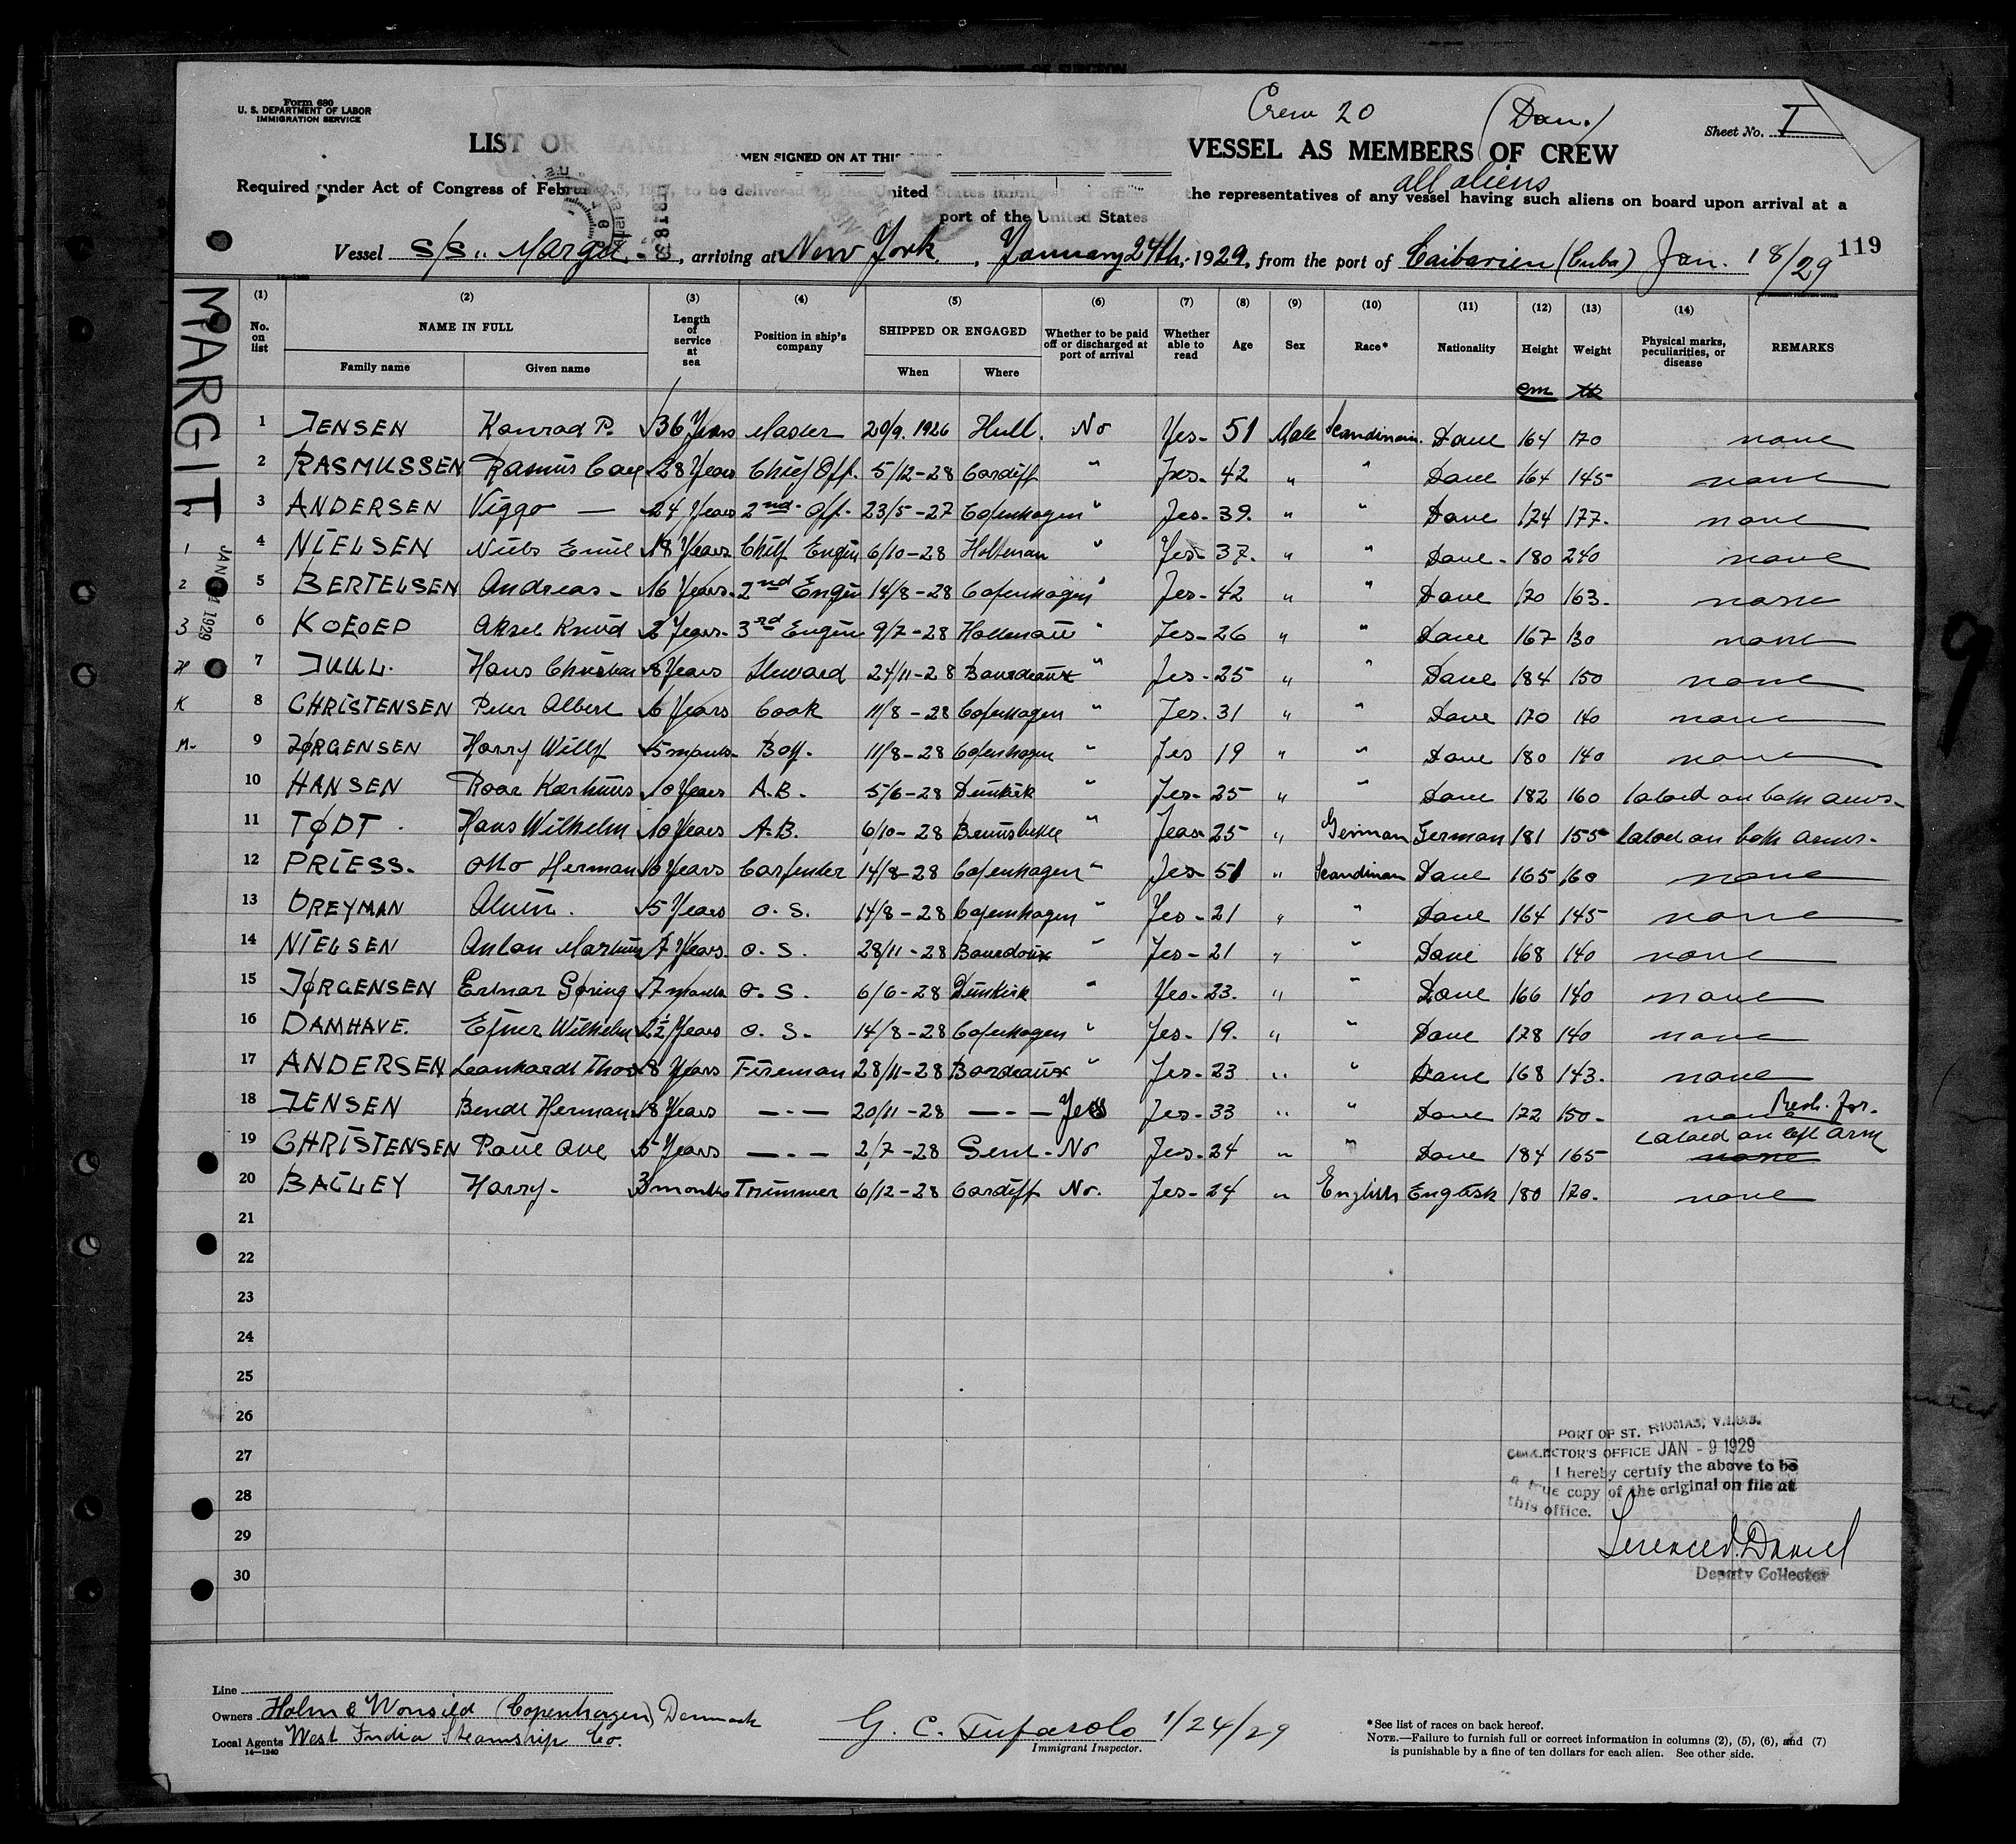 Form 680
U. S. DEPARTMENT OF LABOR
IMMIGRATION SERVICE
Crew 20 (Dan.)
Sheet No. I
LIST OR VESSEL AS MEMBERS OF CREW
MEN SIGNED ON AT THIS
all aliens
Required under Act of Congress of February 5, 1917, to be delivered to the United States the representatives of any vessel having such aliens on board upon arrival at a
port of the United States
Vessel S/S. Margit, arriving at New York, January 24th, 1929, from the port of Caibarien (Cuba) Jan. 18/29
119
MARGIT
JAN 1929
(1) (2) (3) (4) (5) (6) (7) (8) (9) (10) (11) (12) (13) (14)
No. on list
NAME IN FULL
Family name Given name
Length of service at sea
Position in ship's company
SHIPPED OR ENGAGED
When Where
Whether to be paid off or discharged at port of arrival
Whether able to read
Age Sex Race* Nationality Height Weight
Physical marks, peculiarities, or disease
REMARKS
cm
1 JENSEN Konrad P. 36 Years Master 20/9. 1926 Hull. No Yes- 51 Male Scandinavi. Dane 164 170 none
2 RASMUSSEN Rasmus 28 Years Chief Off. 5/12-28 Cardiff " Yes- 42 " " Dane 164 145 none
3 ANDERSEN Viggo — 24 Years 2nd Off. 23/5-27 Copenhagen " Yes- 39. " " Dane 174 177. none
1 4 NIELSEN Niels Emil 18 Years Chief Engin 6/10-28 Holtenau " Yes- 37. " " Dane- 180 240 none
2 5 BERTELSEN Andreas- 16 Years- 2nd Engin 14/8-28 Copenhagen " Yes- 42 " " Dane 170 163. none
3 6 KOEOED Aksel Knud 2 Years- 3rd Engin 9/7-28 Holtenau " Yes- 26 " " Dane 167 130 none
H 7 JUUL. Hans Christian 8 Years Steward 24/11-28 Bourdeaux " Yes- 25 " " Dane 184 150 none
K 8 CHRISTENSEN Peter Albert 6 Years Cook 11/8-28 Copenhagen " Yes. 31 " " Dane 170 140 none
M- 9 JØRGENSEN Harry Willy 5 monts- Boy. 11/8-28 Copenhagen " Yes 19 " " Dane 180 140 none
10 HANSEN Roar 10 Years A.B. 5/6-28 Dunkirk " Yes- 25 " " Dane 182 160 tatoed on both arms-
11 TØDT. Hans Wilhelm 10 Years A.B. 6/10-28 " Yes- 25 " German German 181 155 tatoed on both arms-
12 PRIESS. Otto Herman 16 Years Carpenter 14/8-28 Copenhagen " Yes- 51 " Scandinav Dane 165 160 none
13 DREYMAN Alvin. 5 Years O. S. 14/8-28 Copenhagen " Yes- 21 " " Dane 164 145 none
14 NIELSEN Anton Martinus 7 Years- O. S. 28/11-28 Bourdoux " Yes- 21 " " Dane 168 140 none
15 JØRGENSEN Gøring 7 monts O. S. 6/6-28 Dunkirk " Yes- 23. " " Dane 166 140 none
16 DAMHAVE. Ejner Wilhelm 2½ Years O. S. 14/8-28 Copenhagen " Yes- 19. " " Dane 178 140 none
17 ANDERSEN Leonhardt Thor 8 Years Fireman 28/11-28 Bordeaux " Yes- 23 " " Dane 168 143. none
18 JENSEN Bendt Herman 8 Years — - — 20/11-28 — - — Yes Yes- 33 " " Dane 172 150- none
19 CHRISTENSEN Poul Ove 5 Years — - — 2/7-28 Gent- No Yes- 24 " " Dane 184 165 tatoed on left arm none
20 BAILEY Harry- 3 months Trimmer 6/12-28 Cardiff No. Yes- 24 " English English 180 170- none
21
22
23
24
25
26
27
28
29
30
PORT OF ST. THOMAS, V.I.U.S.
COLLECTOR'S OFFICE JAN - 9 1929
I hereby certify the above to be
a true copy of the original on file at
this office.
Deputy Collector
Line
Owners Holm & Wonsild (Copenhagen) Denmark
Local Agents West India Steamship Co.
14—1240
G. C. Tufarolo 1/24/29
Immigrant Inspector.
*See list of races on back hereof.
NOTE.—Failure to furnish full or correct information in columns (2), (5), (6), and (7)
is punishable by a fine of ten dollars for each alien. See other side.
9